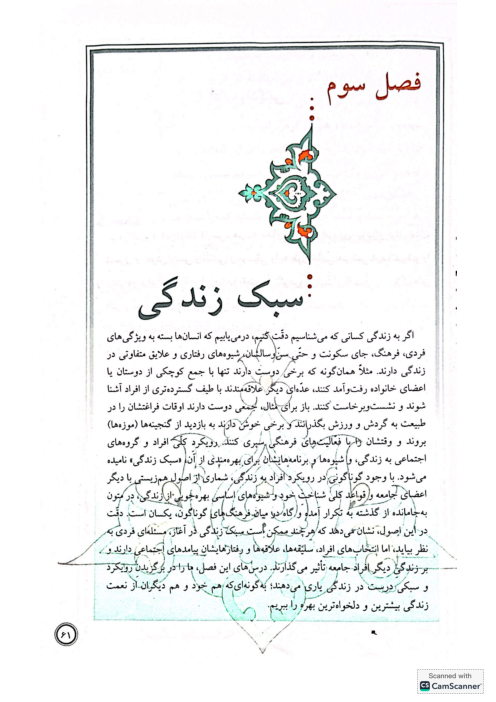 فصل سوم
سبک زندگی
اگر به زندگی کسانی که می‌شناسیم دقّت کنیم، درمی‌یابیم که انسان‌ها بسته به ویژگی‌های
فردی، فرهنگ، جای سکونت و حتّی سن‌وسالشان، شیوه‌های رفتاری و علایق متفاوتی در
زندگی دارند. مثلاً همان‌گونه که برخی دوست دارند تنها با جمع کوچکی از دوستان یا
اعضای خانواده رفت‌وآمد کنند، عدّه‌ای دیگر علاقه‌مندند با طیف گسترده‌تری از افراد آشنا
شوند و نشست‌وبرخاست کنند. باز برای مثال، جمعی دوست دارند اوقات فراغتشان را در
طبیعت به گردش و ورزش بگذرانند و برخی خوش دارند به بازدید از گنجینه‌ها (موزه‌ها)
بروند و وقتشان را با فعالیت‌های فرهنگی سپری کنند. رویکرد کلّی افراد و گروه‌های
اجتماعی به زندگی، و شیوه‌ها و برنامه‌هایشان برای بهره‌مندی از آن، «سبک زندگی» نامیده
می‌شود. با وجود گوناگونی در رویکرد افراد به زندگی، شماری از اصول هم‌زیستی با دیگر
اعضای جامعه و قواعد کلّی شناخت خود و شیوه‌های اساسی بهره‌جویی از زندگی، در متون
به‌جامانده از گذشته به تکرار آمده و گاه در میان فرهنگ‌های گوناگون، یکسان است. دقت
در این اصول، نشان می‌دهد که هرچند ممکن است سبک زندگی در آغاز، مسئله‌ای فردی به
نظر بیاید، اما انتخاب‌های افراد، سلیقه‌ها، علاقه‌ها و رفتارهایشان پیامدهای اجتماعی دارند و
بر زندگی دیگر افراد جامعه تأثیر می‌گذارند. درس‌های این فصل، ما را در برگزیدن رویکرد
و سبکی درست در زندگی یاری می‌دهند؛ به‌گونه‌ای‌که هم خود و هم دیگران از نعمت
زندگی بیشترین و دلخواه‌ترین بهره را ببریم.
۶۱
Scanned with
CS CamScanner